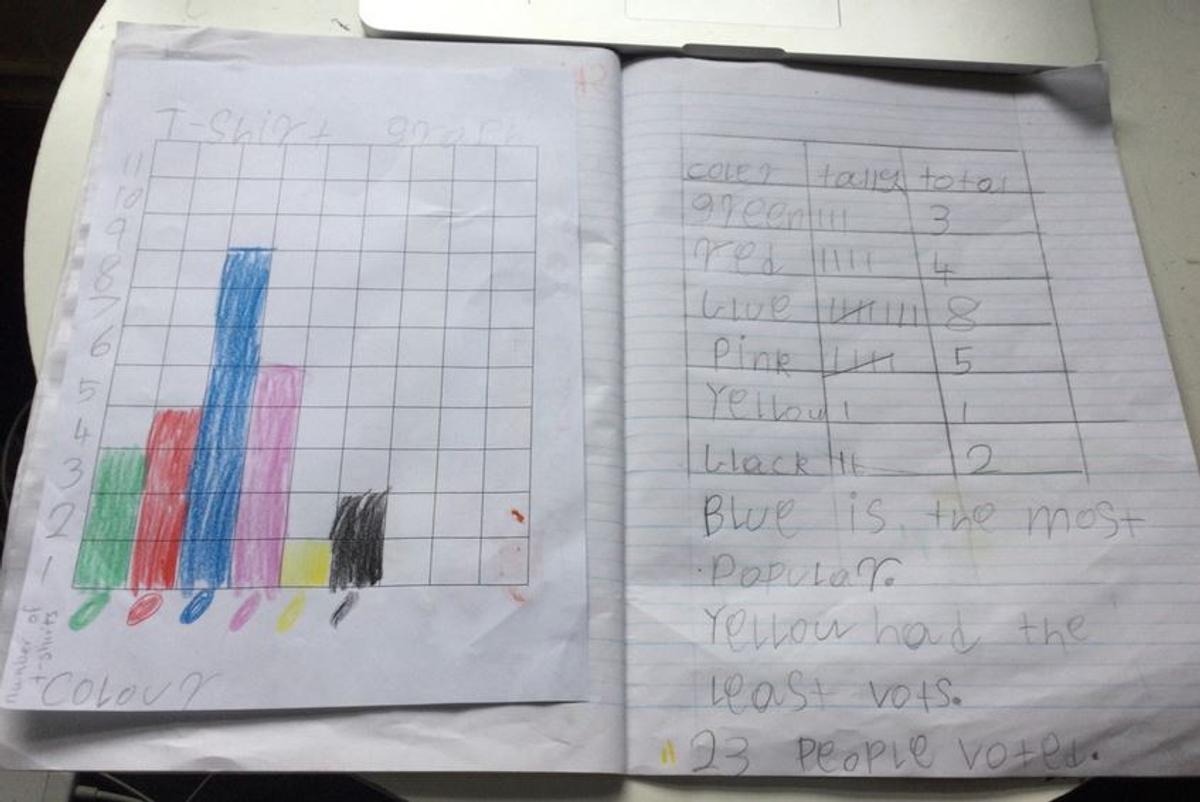 T-Shirt graph
11
10
9
8
7
6
5
4
3
2
1
number of
t-shirts
Colour
coler tally total
green 3
red 4
blue 8
Pink 5
Yellow 1
black 2
Blue is the most
Popular.
Yellow had the
least vots.
23 People voted.